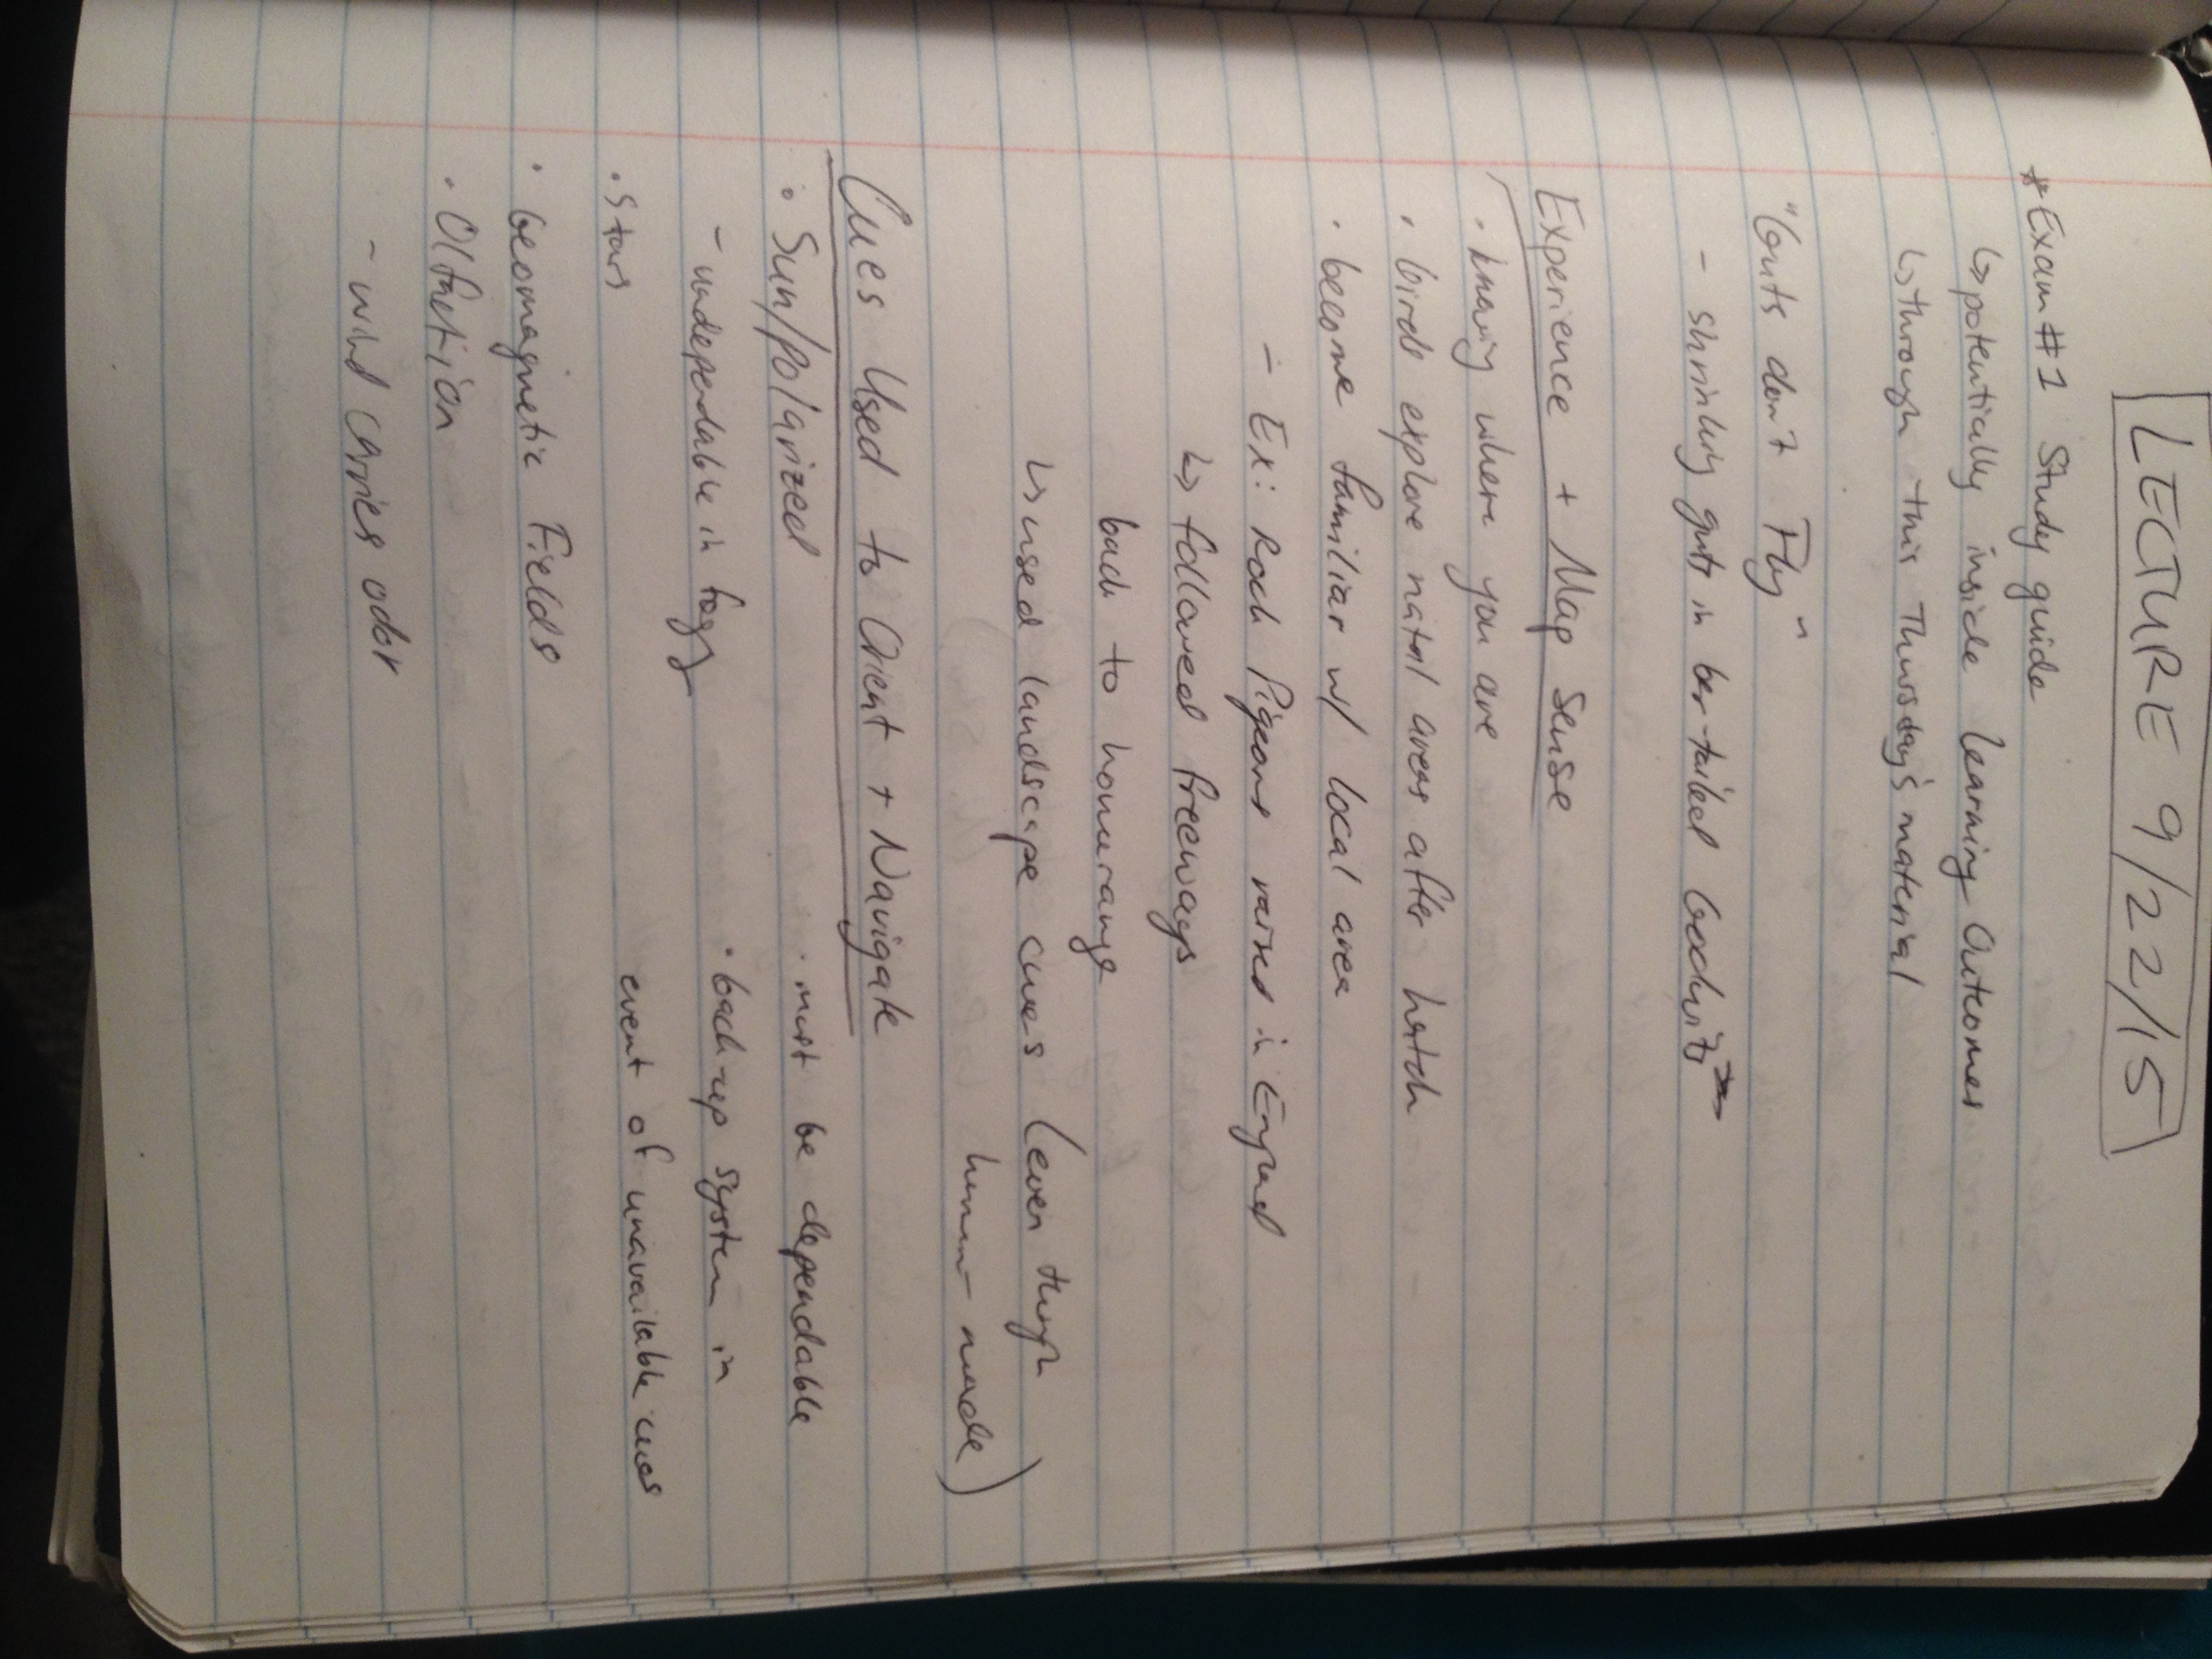 LECTURE 9/22/15
*Exam #1 Study guide
↳ potentially inside Learning Outcomes
↳ through this Thursday's material
"Guts don't Fly"
- shrinking guts in bar-tailed Godwits
Experience + Map Sense
· knowing where you are
· birds explore natal areas after hatch
· become familiar w/ local area
- Ex: Rock Pigeons raised in England
↳ followed freeways
back to homerange
↳ used landscape cues (even though
human-made)
Cues Used to Orient + Navigate
· Sun/polarized
- undependable in foggy
· Stars
· Geomagnetic Fields
· Olfaction
- wind carries odor
· must be dependable
· back-up system in
event of unavailable cues